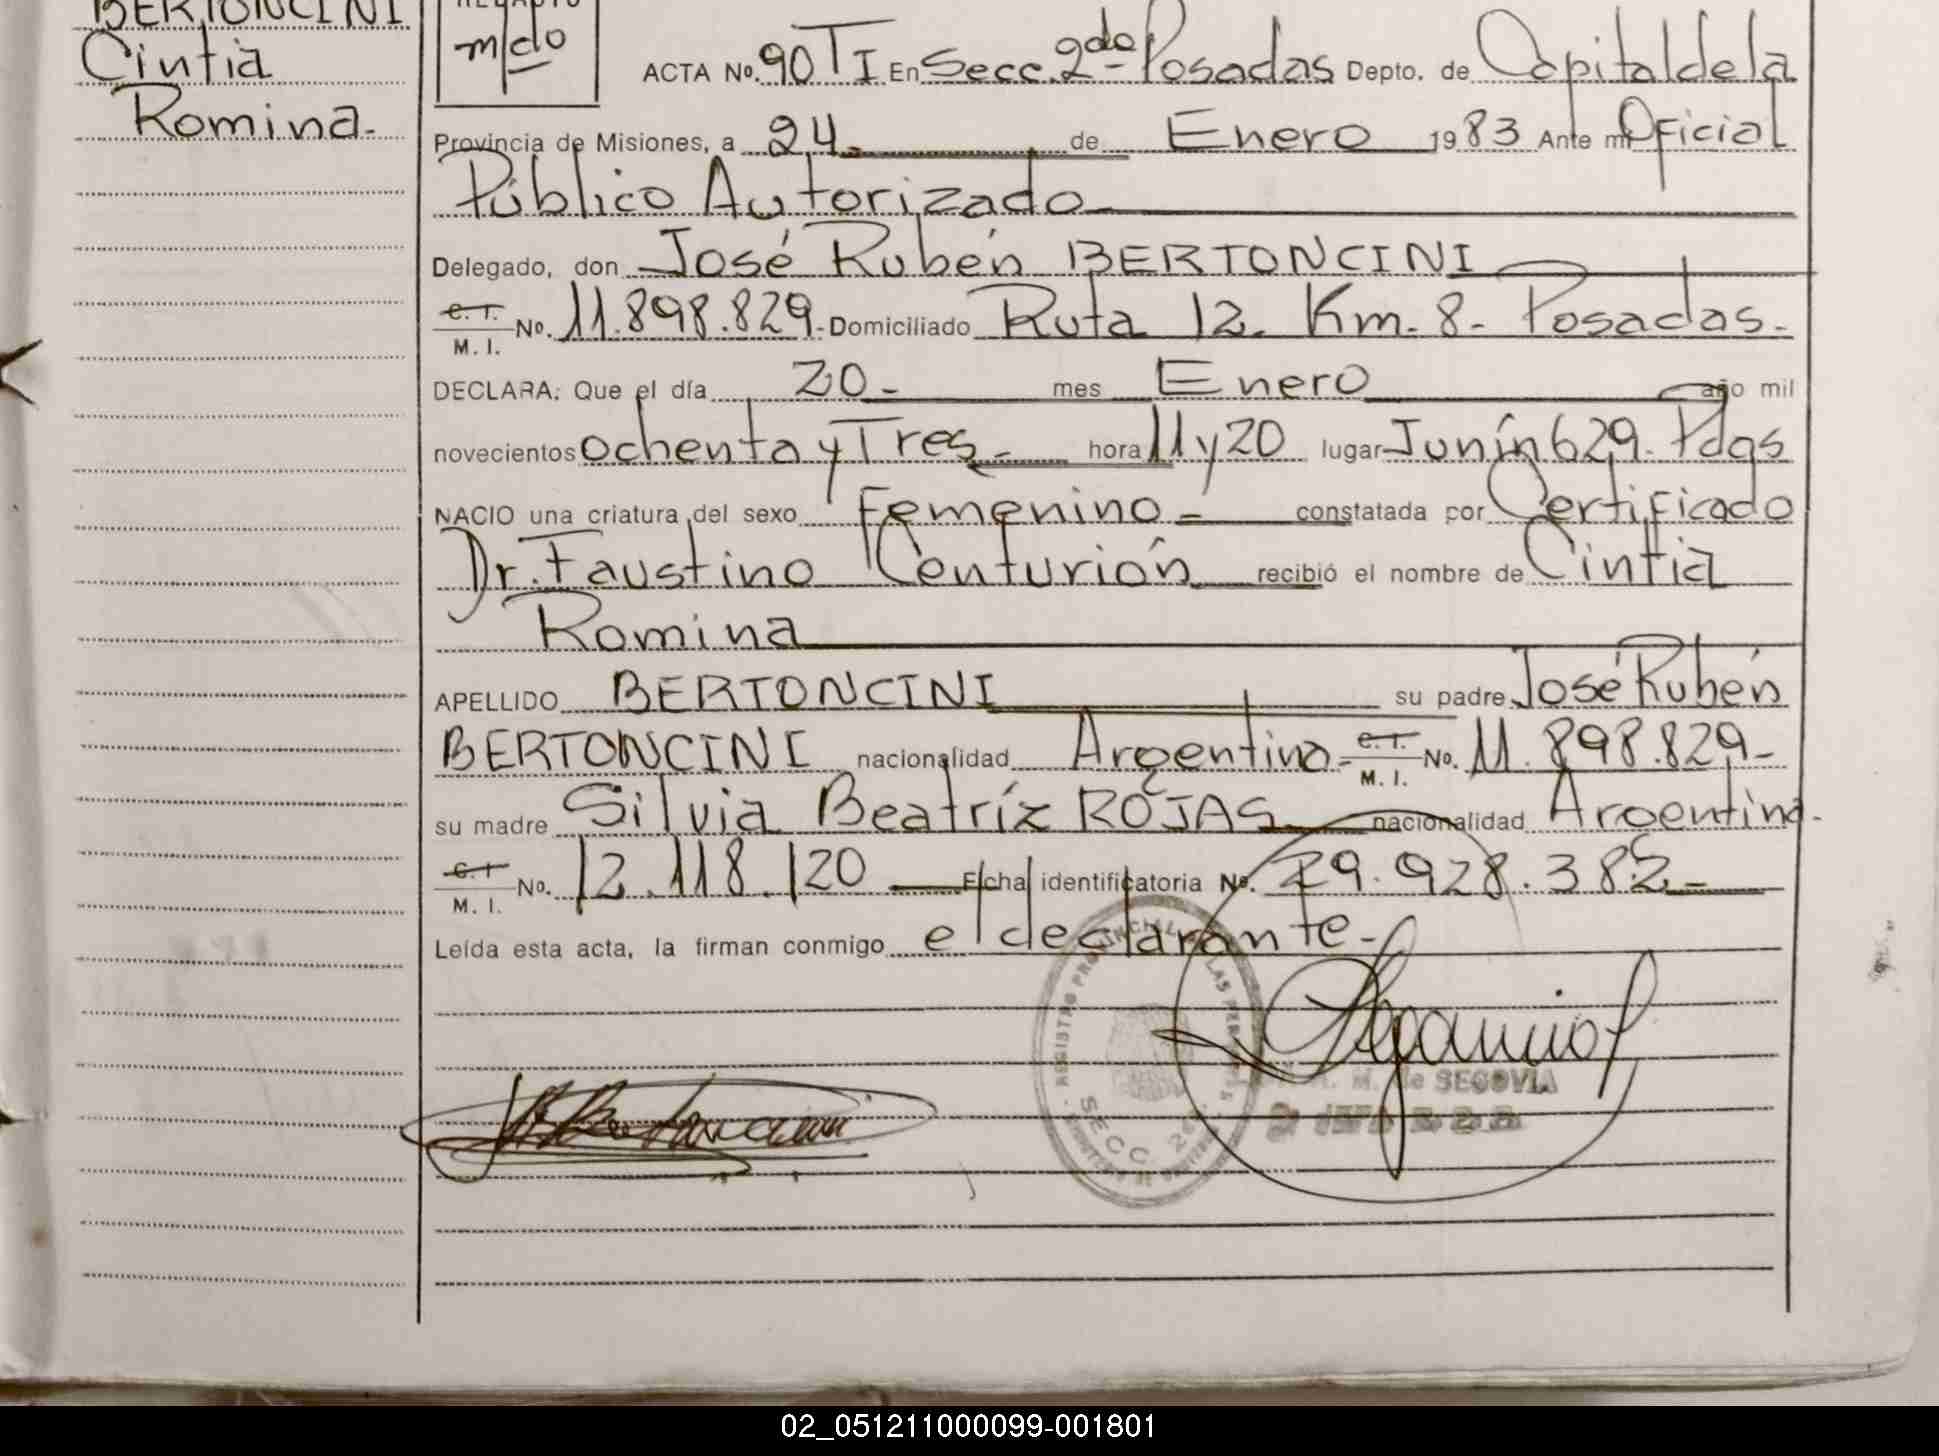 BERTONCINI
Cintia
Romina.
REDACTO
m/do
ACTA No. 90 T I En Secc. 2do Posadas Depto. de Capital de la
Provincia de Misiones, a 24 de Enero 1983 Ante mi Oficial
Público Autorizado
Delegado, don José Rubén BERTONCINI
C. I. M. I. No. 11.898.829.- Domiciliado Ruta 12. Km. 8- Posadas.
DECLARA: Que el día 20- mes Enero año mil
novecientos ochenta y Tres - hora 11 y 20 lugar Junín 629. Pdas
NACIO una criatura del sexo Femenino - constatada por Certificado
Dr. Faustino Centurión recibió el nombre de Cintia
Romina
APELLIDO BERTONCINI su padre José Rubén
BERTONCINI nacionalidad Argentina - C. I. M. I. No. 11.898.829-
su madre Silvia Beatríz ROJAS nacionalidad Argentina.
C. I M. I. No. 12.118.120 Ficha identificatoria No. 29.928.382-
Leída esta acta, la firman conmigo el declarante-
REGISTRO PROVINCIAL DE LAS PERSONAS
SECC. 2da.
M. de SEGOVIA
02_051211000099-001801